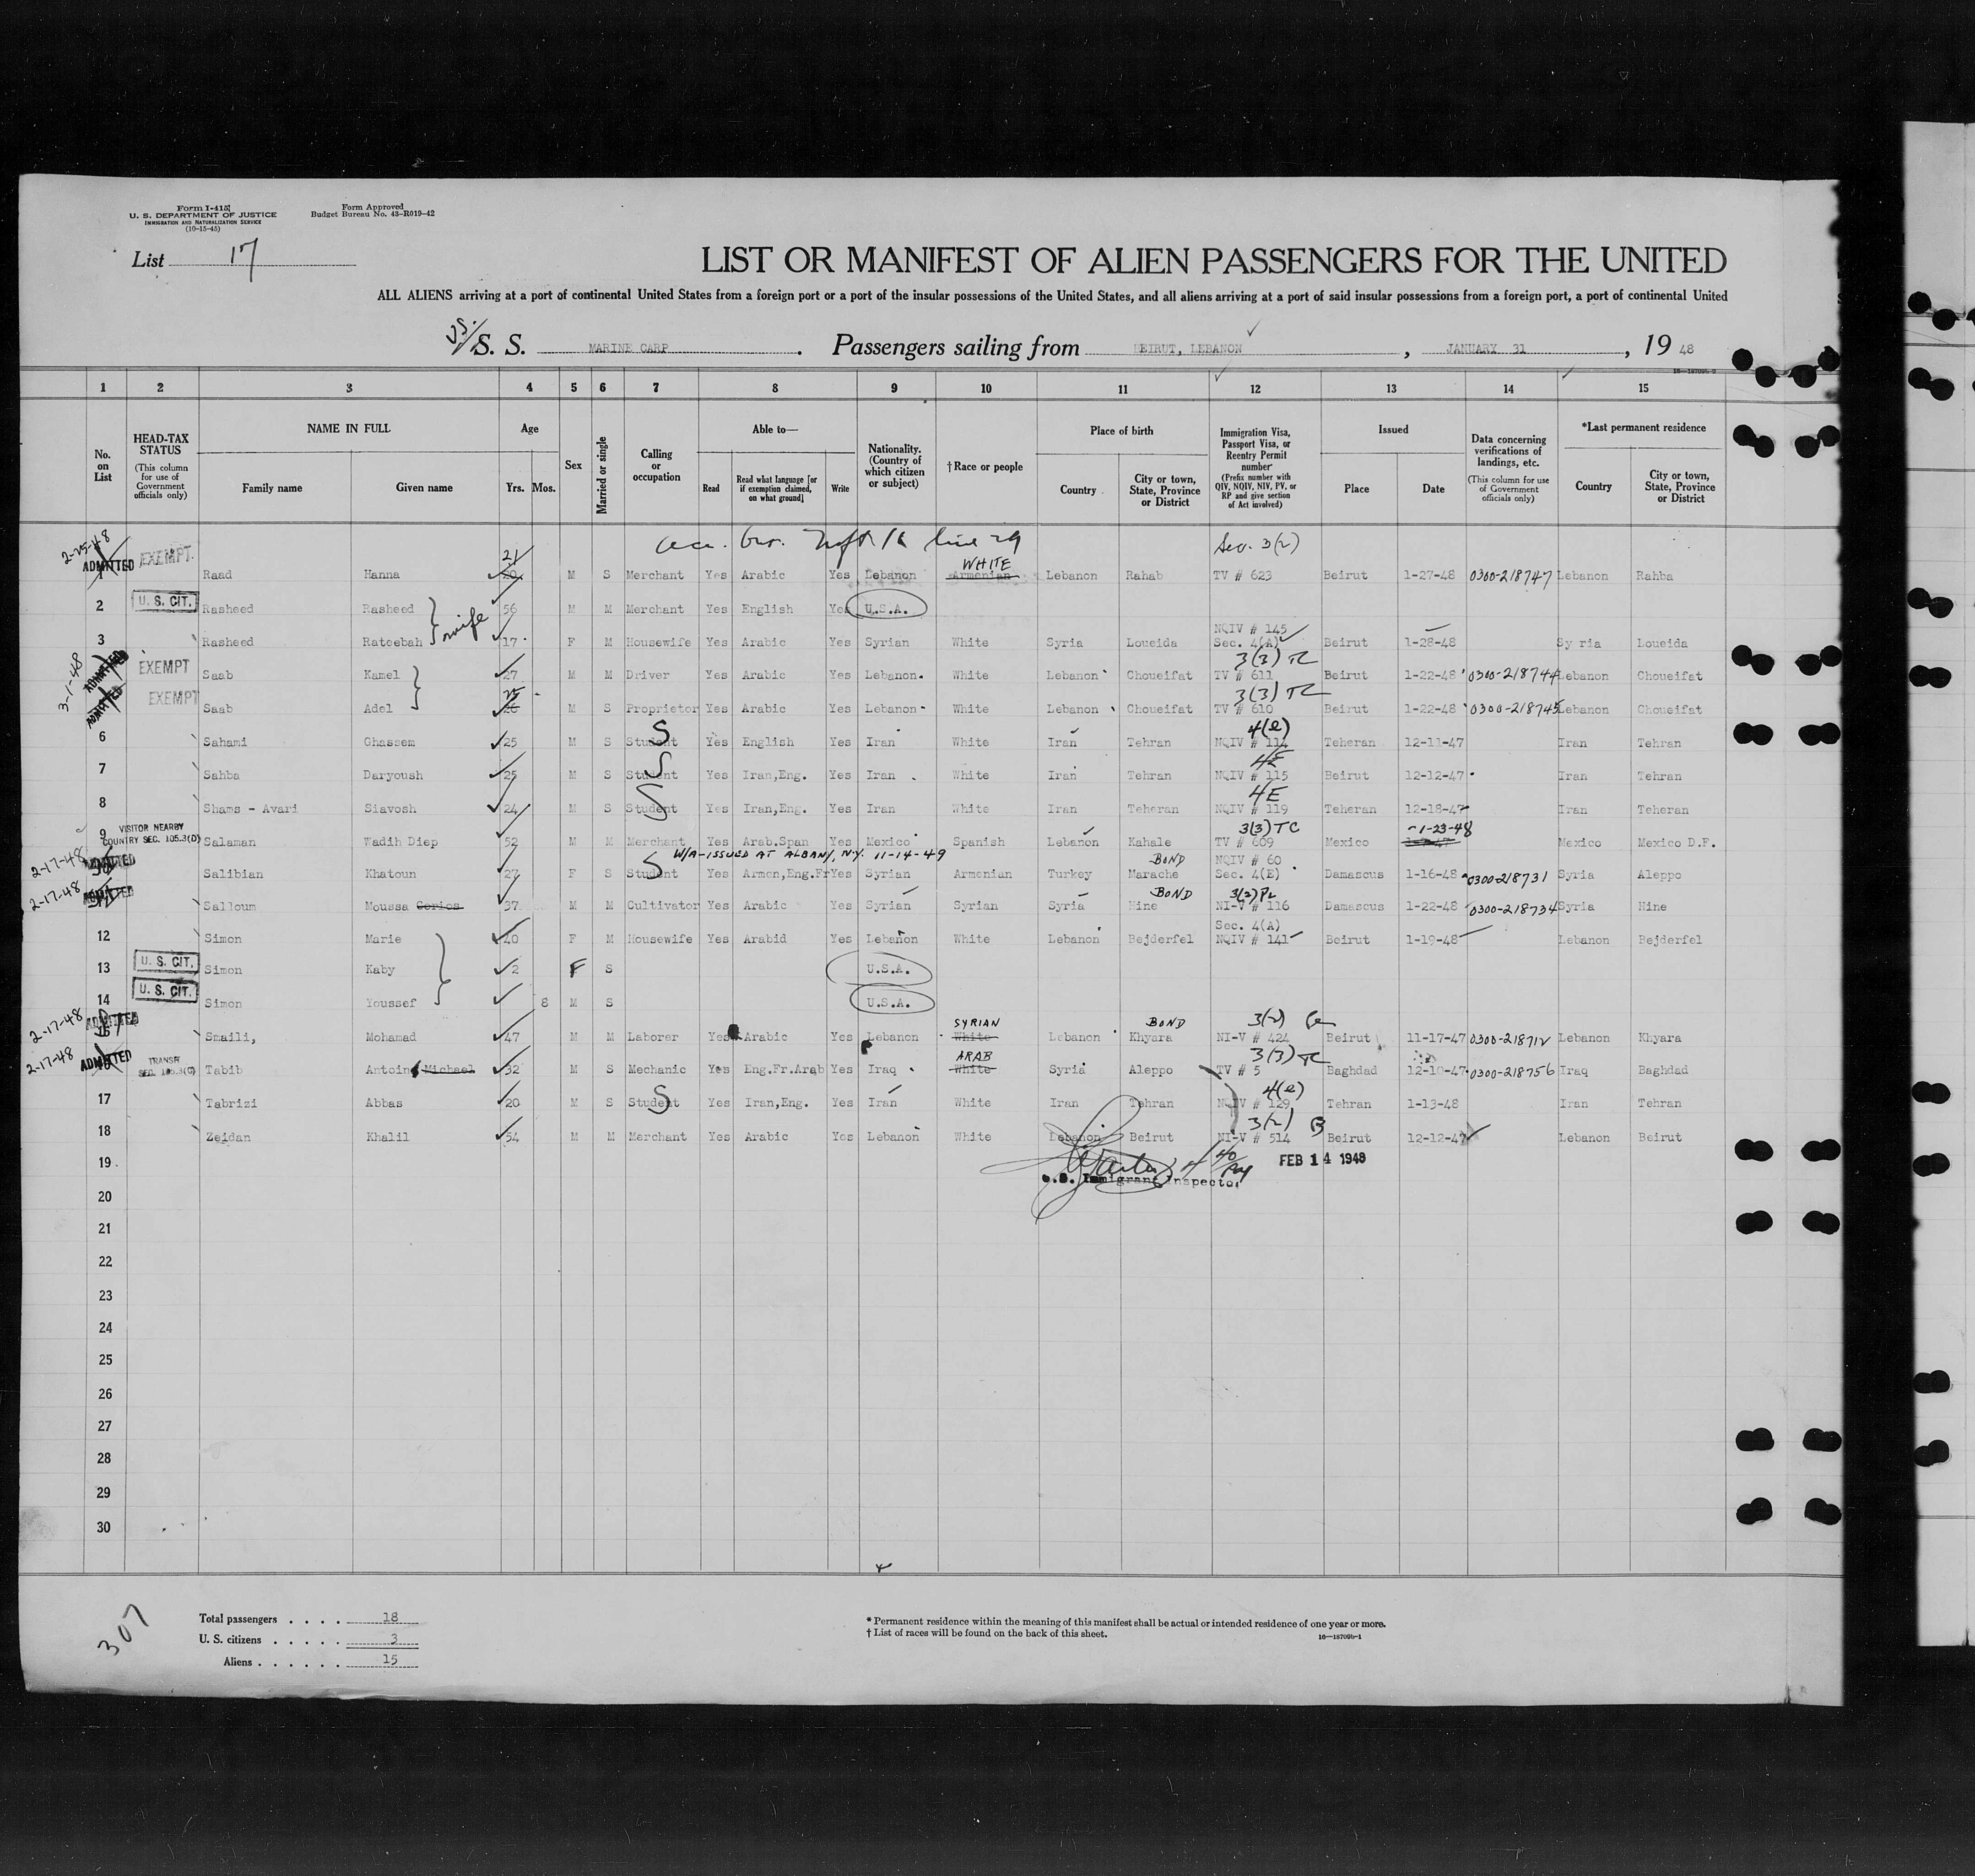 Form I-415
U. S. DEPARTMENT OF JUSTICE
IMMIGRATION AND NATURALIZATION SERVICE
(10-15-45)
Form Approved
Budget Bureau No. 43-R019-42
List 17
LIST OR MANIFEST OF ALIEN PASSENGERS FOR THE UNITED
ALL ALIENS arriving at a port of continental United States from a foreign port or a port of the insular possessions of the United States, and all aliens arriving at a port of said insular possessions from a foreign port, a port of continental United
S. S. MARINE CARP. Passengers sailing from BEIRUT, LEBANON, JANUARY 31, 19 48
1 2 3 4 5 6 7 8 9 10 11 12 13 14 15
No. on List
HEAD-TAX STATUS (This column for use of Government officials only)
NAME IN FULL
Family name Given name
Age
Yrs. Mos.
Sex
Married or single
Calling or occupation
Able to—
Read
Read what language [or if exemption claimed, on what ground]
Write
Nationality. (Country of which citizen or subject)
†Race or people
Place of birth
Country
City or town, State, Province or District
Immigration Visa, Passport Visa, or Reentry Permit number (Prefix number with QIV, NQIV, NIV, PV, or RP and give section of Act involved)
Issued
Place Date
Data concerning verifications of landings, etc. (This column for use of Government officials only)
*Last permanent residence
Country
City or town, State, Province or District
2-25-48 EXEMPT. 21 line 29 Sec. 3(2)
ADMITTED WHITE
1 Raad Hanna 20 M S Merchant Yes Arabic Yes Lebanon Armenian Lebanon Rahab TV # 623 Beirut 1-27-48 0300-218747 Lebanon Rahba
2 U. S. CIT. Rasheed Rasheed 56 M M Merchant Yes English Yes U.S.A.
wife
NQIV # 145
3 Rasheed Rateebah 17 F M Housewife Yes Arabic Yes Syrian White Syria Loueida Sec. 4(A) Beirut 1-28-48 Sy ria Loueida
3-1-48 ADMITTED EXEMPT 3(3) TC
Saab Kamel 27 M M Driver Yes Arabic Yes Lebanon White Lebanon Choueifat TV # 611 Beirut 1-22-48 0300-218744 Lebanon Choueifat
ADMITTED EXEMPT 25 3(3) TC
Saab Adel 26 M S Proprietor Yes Arabic Yes Lebanon White Lebanon Choueifat TV # 610 Beirut 1-22-48 0300-218745 Lebanon Choueifat
S 4(e)
6 Sahami Ghassem 25 M S Student Yes English Yes Iran White Iran Tehran NQIV # 114 Teheran 12-11-47 Iran Tehran
S 4E
7 Sahba Daryoush 25 M S Student Yes Iran,Eng. Yes Iran White Iran Tehran NQIV # 115 Beirut 12-12-47 Iran Tehran
S 4E
8 Shams - Avari Siavosh 24 M S Student Yes Iran,Eng. Yes Iran White Iran Teheran NQIV # 119 Teheran 12-18-47 Iran Teheran
VISITOR NEARBY COUNTRY SEC. 105.3(D) 3(3) TC 1-23-48
9 Salaman Wadih Diep 52 M M Merchant Yes Arab.Span Yes Mexico Spanish Lebanon Kahale TV # 609 Mexico Mexico Mexico D.F.
2-17-48 ADMITTED S W/A-ISSUED AT ALBANY, N.Y. 11-14-49 BOND NQIV # 60
Salibian Khatoun 27 F S Student Yes Armen,Eng.Fr Yes Syrian Armenian Turkey Marache Sec. 4(E) Damascus 1-16-48 0300-218731 Syria Aleppo
2-17-48 ADMITTED BOND
Salloum Moussa Gerios 37 M M Cultivator Yes Arabic Yes Syrian Syrian Syria Hine NI-V # 116 Damascus 1-22-48 0300-218734 Syria Hine
Sec. 4(A)
12 Simon Marie 40 F M Housewife Yes Arabid Yes Lebanon White Lebanon Bejderfel NQIV # 141 Beirut 1-19-48 Lebanon Bejderfel
13 U. S. CIT. Simon Kaby 2 F S U.S.A.
14 U. S. CIT. Simon Youssef 8 M S U.S.A.
2-17-48 ADMITTED SYRIAN BOND 3(2)
Smaili, Mohamad 47 M M Laborer Yes Arabic Yes Lebanon White Lebanon Khyara NI-V # 424 Beirut 11-17-47 0300-218712 Lebanon Khyara
2-17-48 ADMITTED TRANSIT SEC. 105.3(C) ARAB 3(3) TC
Tabib Antoine Michael 32 M S Mechanic Yes Eng.Fr.Arab Yes Iraq White Syria Aleppo TV # 5 Baghdad 12-10-47 0300-218756 Iraq Baghdad
S 4(e)
17 Tabrizi Abbas 20 M S Student Yes Iran,Eng. Yes Iran White Iran Tehran NQIV # 129 Tehran 1-13-48 Iran Tehran
3(2) B
18 Zeidan Khalil 54 M M Merchant Yes Arabic Yes Lebanon White Lebanon Beirut NI-V # 514 Beirut 12-12-47 Lebanon Beirut
19 FEB 14 1948
U.S. Immigrant Inspector
20
21
22
23
24
25
26
27
28
29
30
307
Total passengers . . . . 18
U. S. citizens . . . . . 3
Aliens . . . . . . 15
* Permanent residence within the meaning of this manifest shall be actual or intended residence of one year or more.
† List of races will be found on the back of this sheet.
16—18709b-1